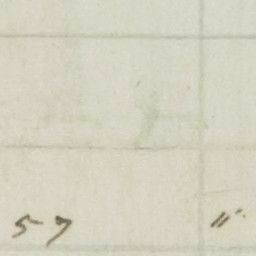 57 "